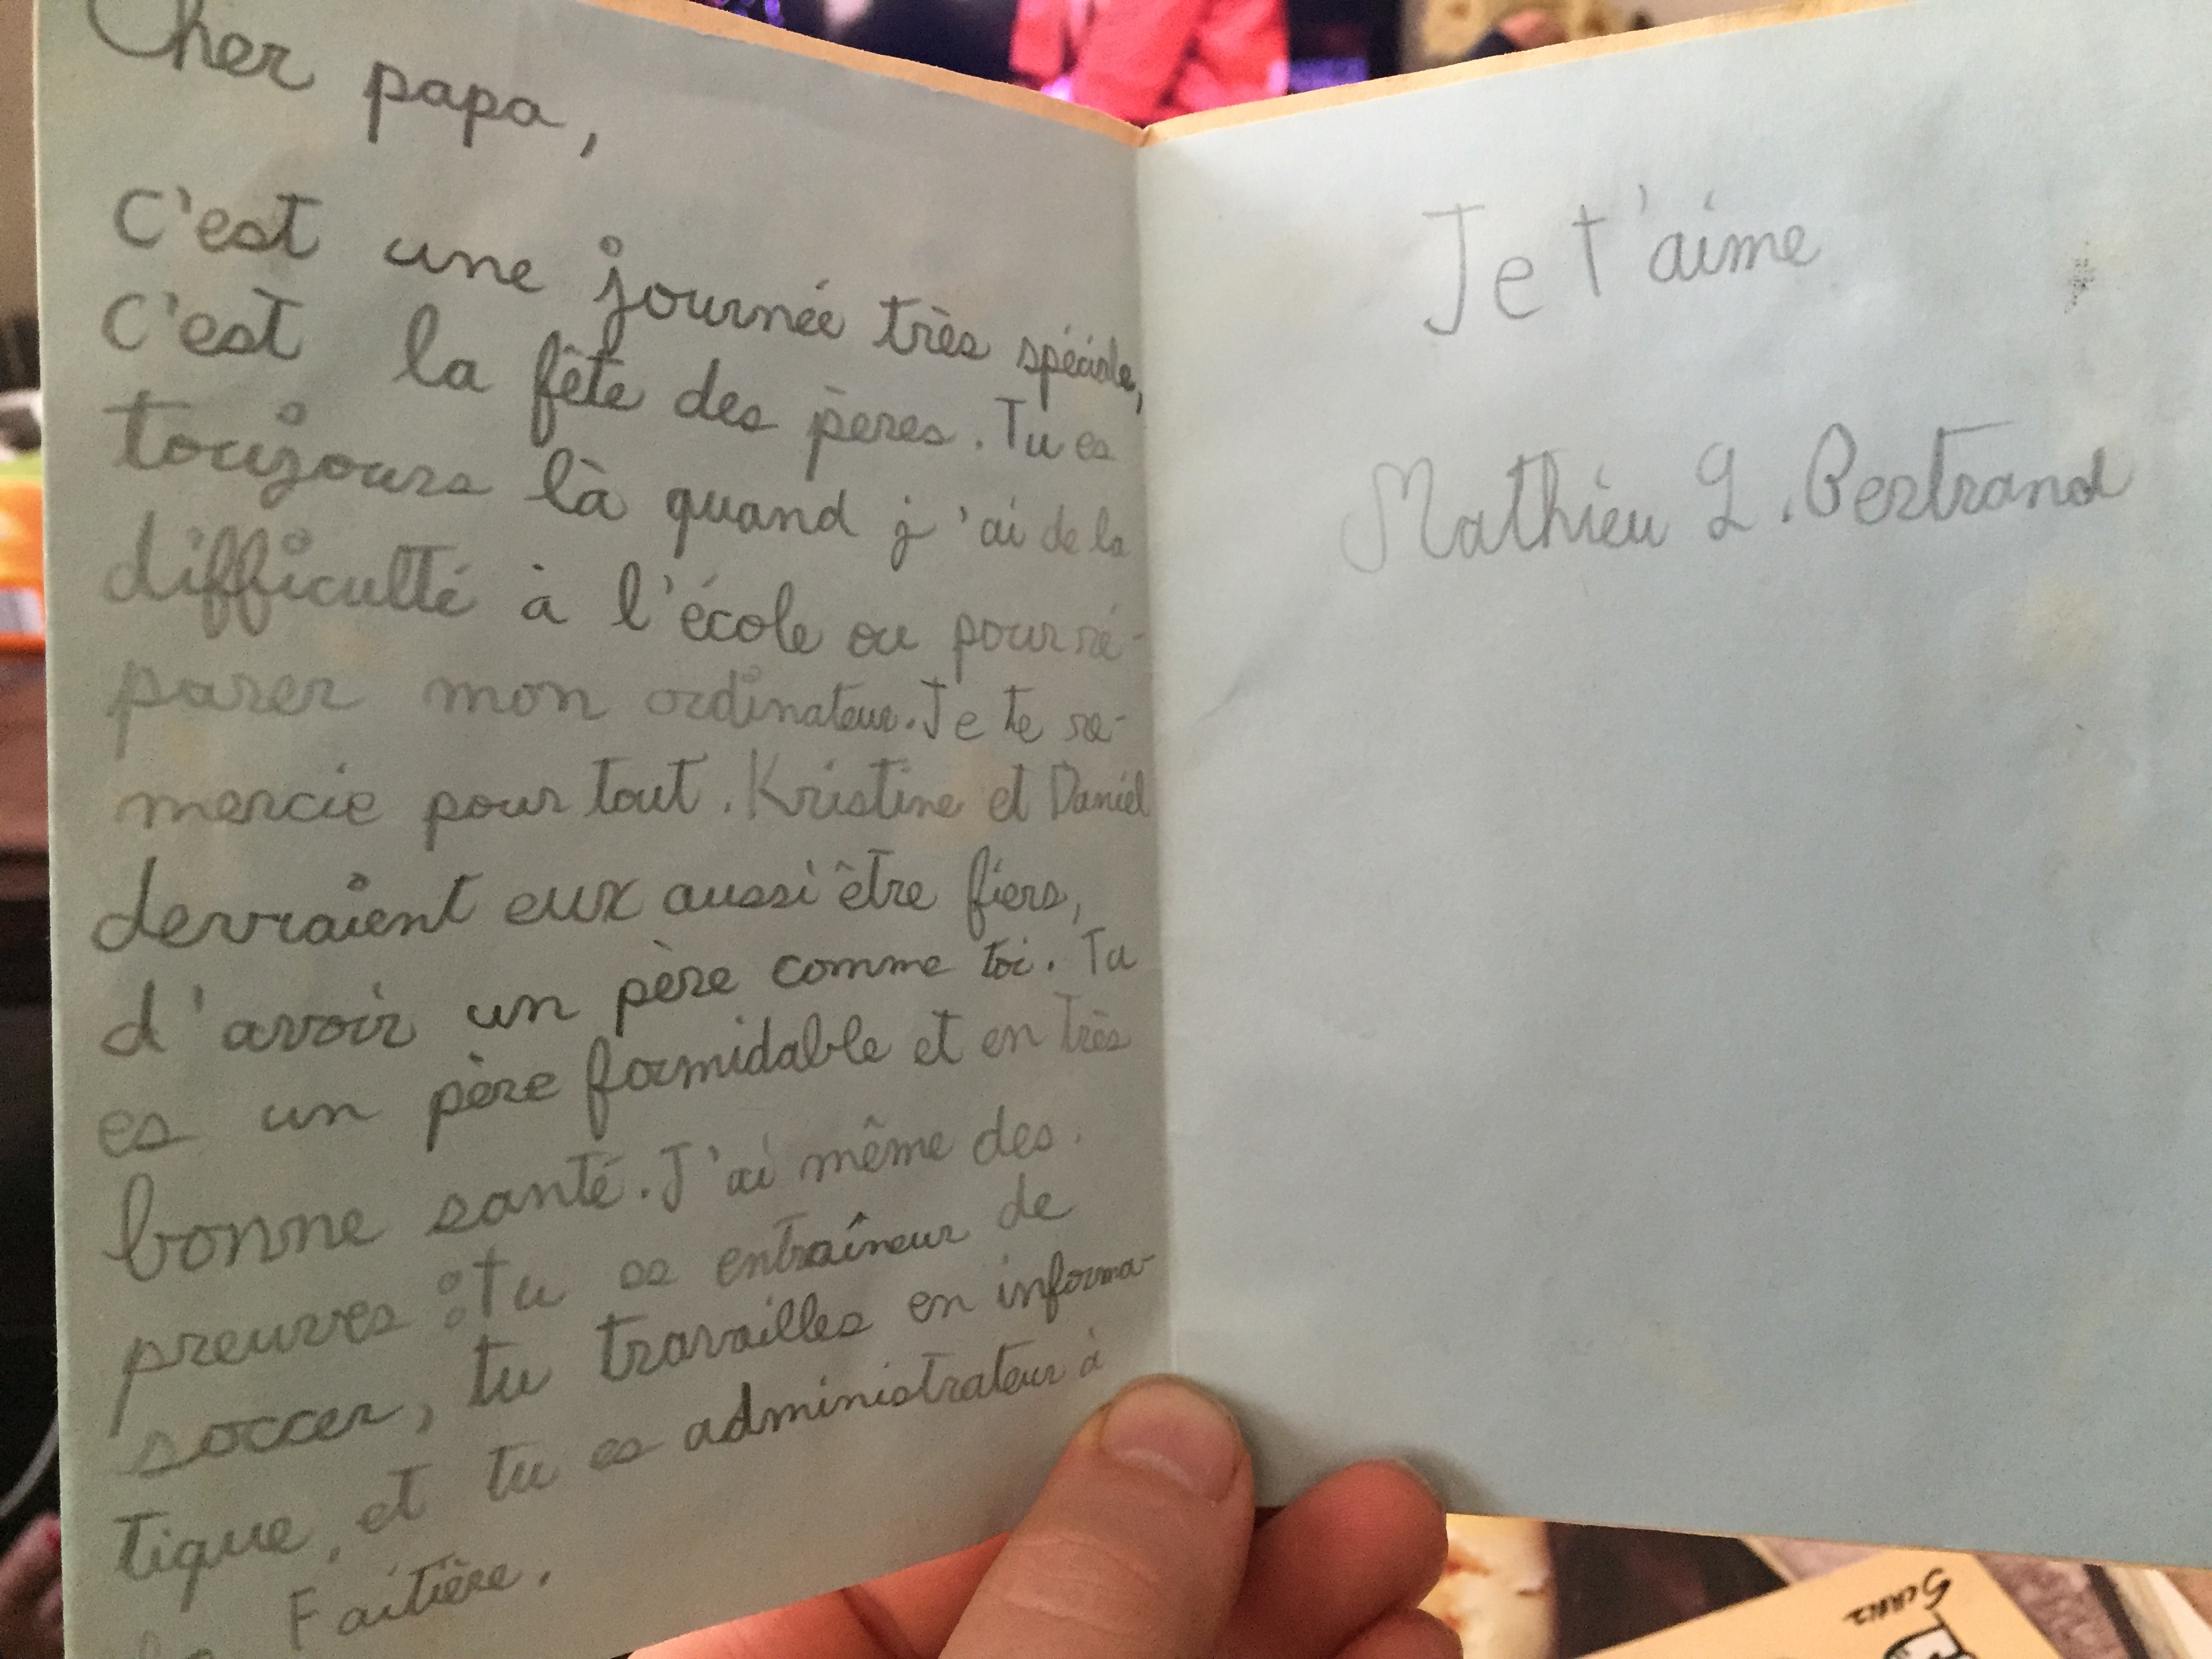 Cher papa,
C'est une journée très spéciale,
C'est la fête des pères. Tu es
toujours là quand j'ai de la
difficulté à l'école ou pour ré-
parer mon ordinateur. Je te re-
mercie pour tout. Kristine et Daniel
devraient eux aussi être fiers,
d'avoir un père comme toi. Tu
es un père formidable et en très
bonne santé. J'ai même des
preuves : Tu es entraîneur de
soccer, tu travailles en informa-
tique, et tu es administrateur à
la Faitière.
Je t'aime
Mathieu L. Bertrand